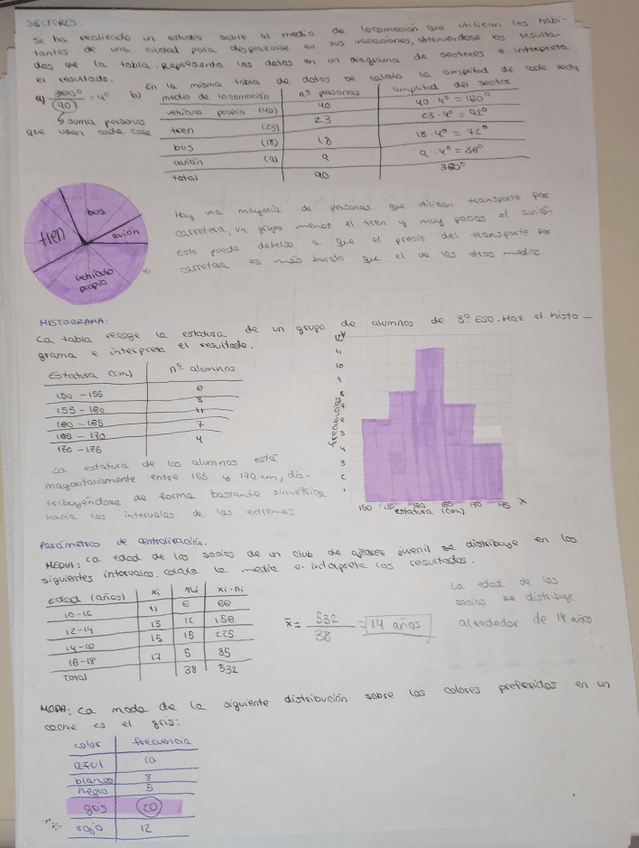 SECTORES:
Se ha realizado un estudio sobre el medio de locomoción que utilizan los habi-
tantes de una ciudad para desplazarse en sus vacaciones, obteniéndose los resulta-
dos de la tabla. Representa los datos en un diagrama de sectores e interpreta
el resultado.
En la misma tabla de datos se calcula la amplitud de cada sector
a) 360º/90 = 4º b)
suma personas
que usan cada cosa
medio de locomoción nº personas amplitud del sector
vehículo propio (40) 40 40·4º=160º
tren (23) 23 23·4º=92º
bus (18) 18 18·4º=72º
avión (9) 9 9·4º=36º
total 90 360º
bus
tren
avión
vehículo
propio
Hay una mayoría de personas que utilizan transporte por
carretera, un grupo menor el tren y muy pocas el avión
Esto puede deberse a que el precio del transporte por
carretera es más barato que el de los otros medios
HISTOGRAMA:
La tabla recoge la estatura de un grupo de alumnos de 3º ESO. Haz el histo-
grama e interpreta el resultado.
Estatura (cm) nº alumnos
150-155 6
155-160 8
160-165 11
165-170 7
170-175 4
La estatura de los alumnos está
mayoritariamente entre 155 y 170 cm, dis-
tribuyéndose de forma bastante simétrica
hacia los intervalos de los extremos.
frecuencias
150 155 160 165 170 175 X
estatura (cm)
Parámetros de centralización.
MEDIA: La edad de los socios de un club de ajedrez juvenil se distribuye en los
siguientes intervalos, calcula la media e interpreta los resultados.
edad (años) xi ni xi·ni
10-12 11 6 66
12-14 13 12 156
14-16 15 15 225
16-18 17 5 85
Total 38 532
x̄ = 532/38 = 14 años
La edad de los
socios se distribuye
alrededor de 14 años
MODA: La moda de la siguiente distribución sobre los colores preferidos en un
coche es el gris:
color frecuencia
azul 10
blanco 8
negro 5
gris 20
rojo 12